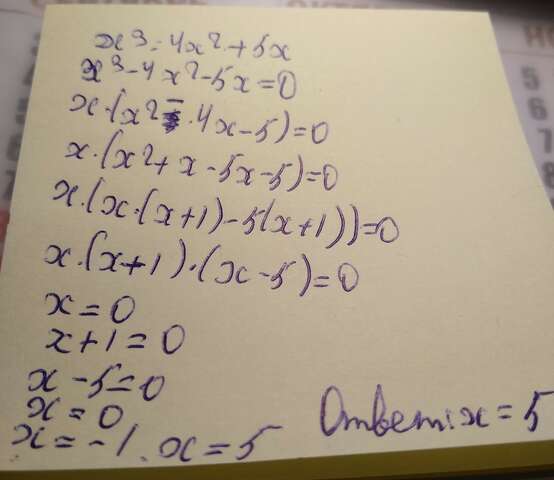 x³ = 4x² + 5x
x³ - 4x² - 5x = 0
x·(x² - 4x - 5) = 0
x·(x² + x - 5x - 5) = 0
x·(x·(x+1) - 5(x+1)) = 0
x·(x+1)·(x-5) = 0
x = 0
x + 1 = 0
x - 5 = 0
x = 0
x = -1. x = 5
Ответ: x = 5
5
6
7